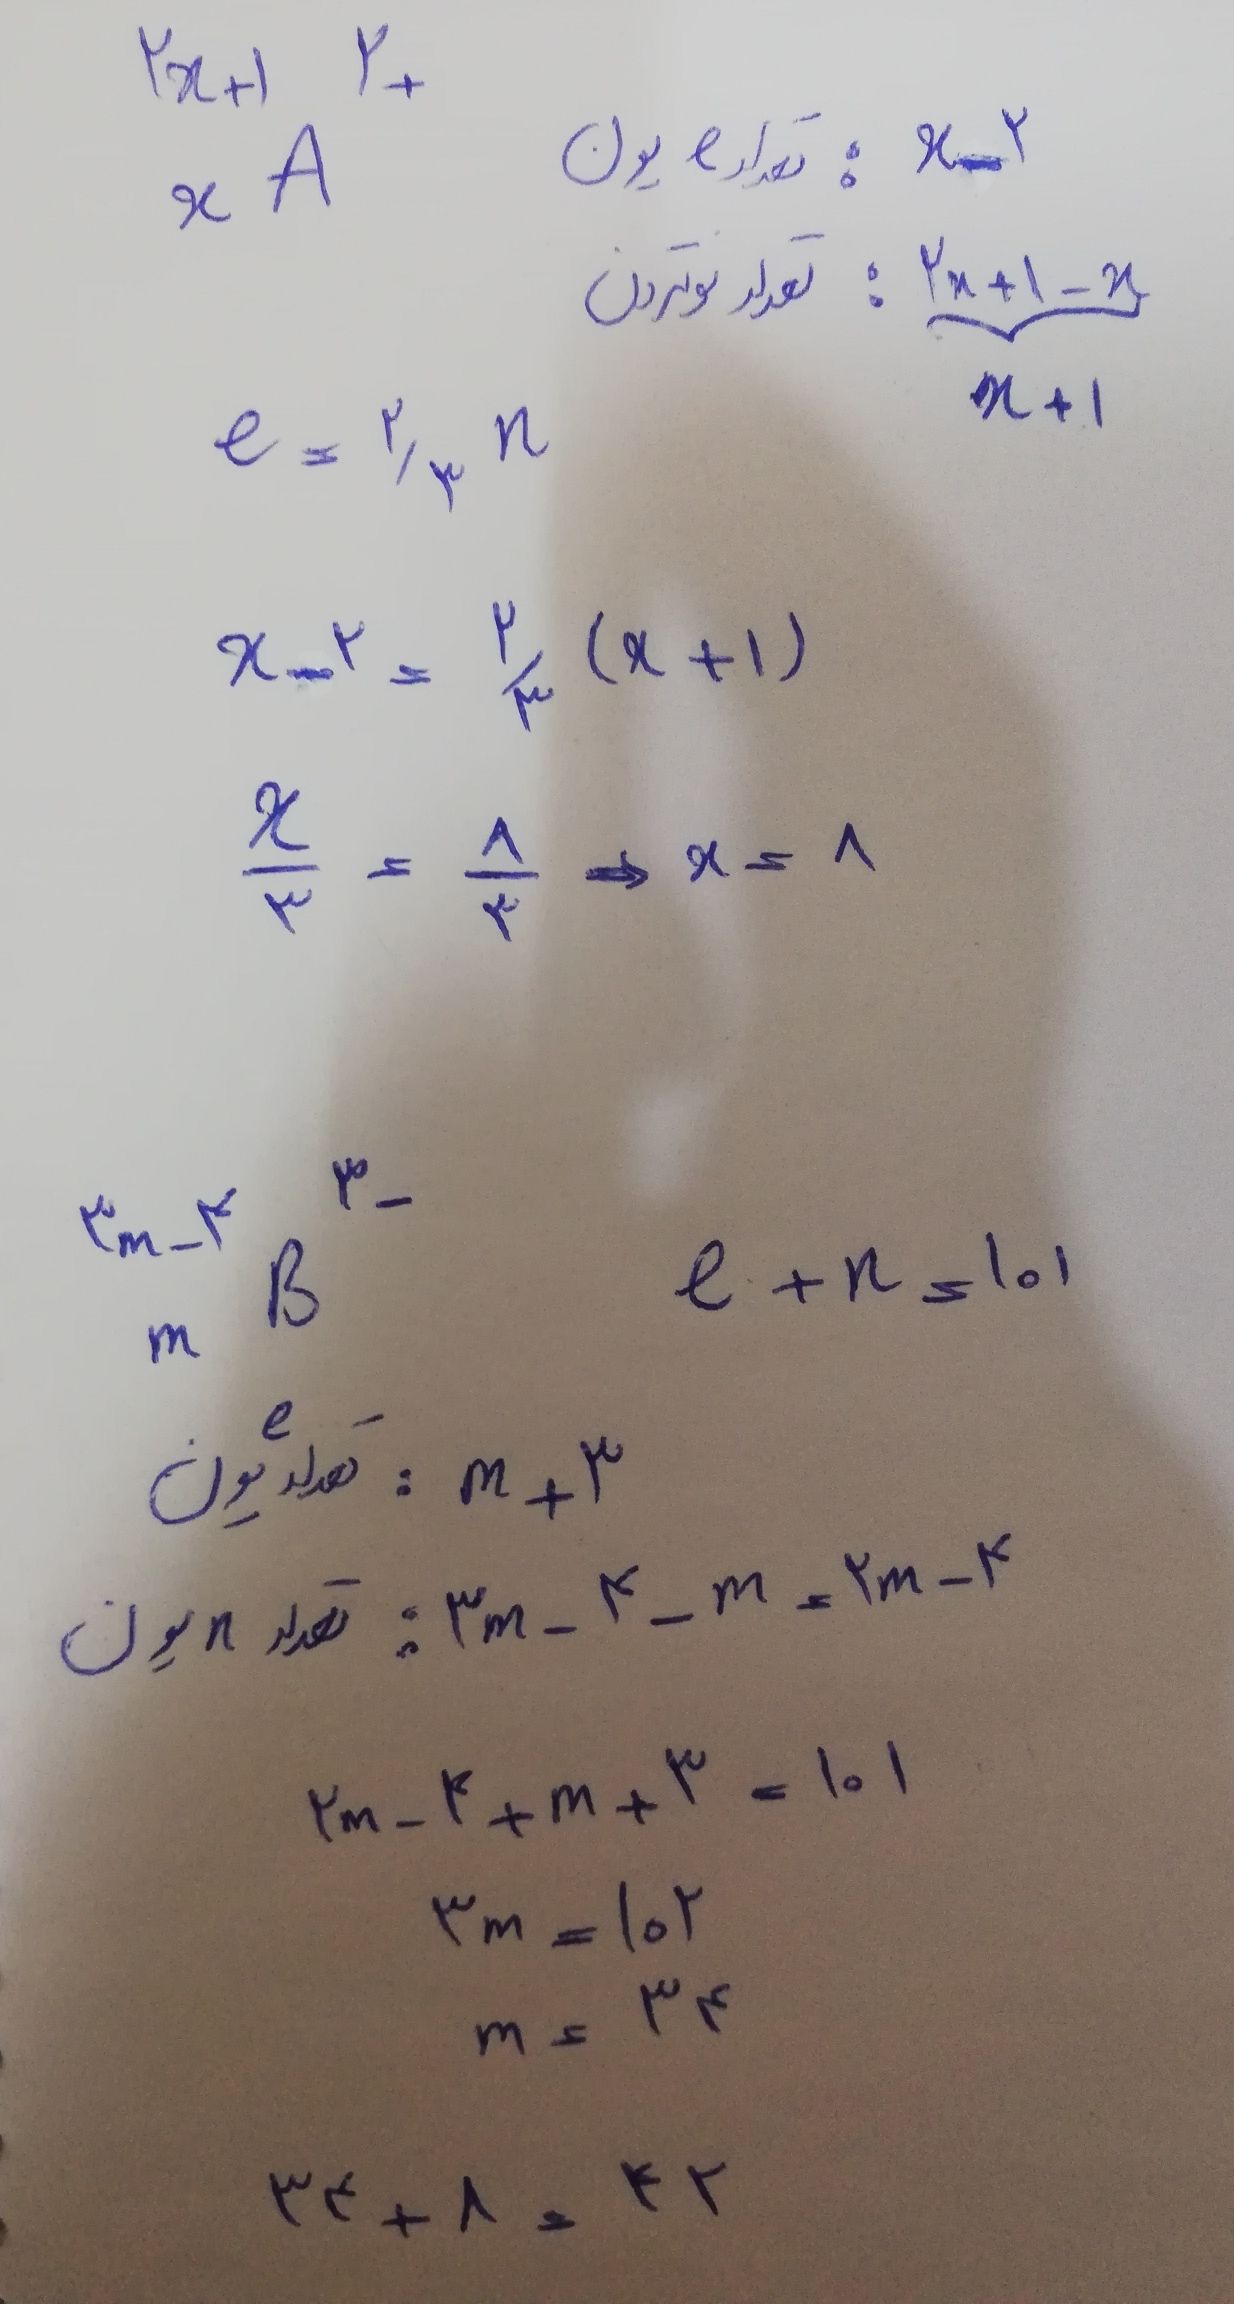 ۲x+۱ ۲+
x A
تعداد e یون : x-۲
تعداد نوترون : ۲x+۱-x
x+۱
e = ۲/۳ n
x-۲ = ۲/۳ (x+۱)
x/۳ = ۸/۳ ⇒ x = ۸
۳m-۴ ۳-
m B
e + n = ۱۰۱
تعداد e یون : m+۳
تعداد n یون : ۳m-۴-m=۲m-۴
۲m-۴+m+۳=۱۰۱
۳m=۱۰۲
m=۳۴
۳۴+۸=۴۲